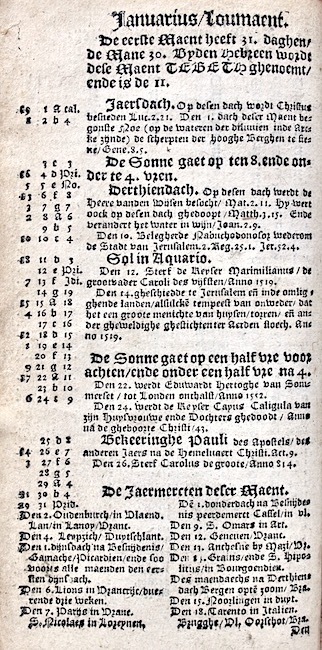 Januarius/Loumaent.
De eerste Maent heeft 31. daghen/
de Mane 30. Byden Hebreen wordt
dese Maent TEBETH ghenoemt/
ende is de 11.
1 a Cal. Jaersdach. Op desen dach wordt Christus
8 2 b 4 besneden Luc.2.21. Den 1. dach deser Maent be-
gonste Noe (op de wateren der diluvien inde Arc-
ke zijnde) de scherpten der hooghe Berghen te sie-
ne/Gene.8.5.
3 c 3 De Sonne gaet op ten 8. ende on-
4 d Pri. der te 4. vren.
5 5 e No. Derthiendach. Op desen dach werdt de
6 f 8 Heere vanden Wisen besocht/Mat.2.11. Hy wert
2 7 g 7 oock op desen dach ghedoopt/Matth.3.15. Ende
2 8 a 6 verandert het water in wijn/Joan.2.9.
9 b 5
10 c 4 Den 10. Belegherde Nabuchodonosor wederom
de Stadt van Jerusalem.2.Reg.25.1. Jer.52.4.
11 d 3 Sol in Aquario.
12 e Pri. Den 12. Sterf de Keyser Maximilianus/de
7 13 f Idi. grootvader Caroli des vijfsten/Anno 1519.
14 g 19 Den 14. gheschiedde te Jerusalem en inde omlig-
15 a 18 ghende landen/alsulcke tempeest van onweder/dat
4 16 b 17 het een groote menichte van huysen/torren/en an-
17 c 16 der gheweldighe ghestichten ter Aerden stoech. An-
18 d 15 no 1519.
1 19 e 14
20 f 13 De Sonne gaet op een half vre voor
9 21 g 12 achten/ende onder een half vre na 4.
22 a 11 Den 22. werdt Eduwardt Hertoghe van Som-
23 b 10 merset/tot Londen onthalst/Anno 1552.
6 24 c 9 Den 24. werdt de Keyser Cayus Caligula van
zijn Huysvrouwe ende Dochters ghedoodt/Anno
na de gheboorte Christi/43.
25 d 8 Bekeeringhe Pauli des Apostels/des
26 e 7 anderen Jaers na de Hemelvaert Christi.Act.9.
3 27 f 6 Den 26. Sterf Carolus de groote/Anno 814.
28 g 5
29 a 4
30 b 4
31 Prid. De Jaermercten deser Maent.
Den 2. Oudenburch/in Vlaend.
Lan/in Lanoy/Vrant.
Den 4. Leypzich/Duytschlant.
Den 1. dijnsdach na Besnijdenis/
Gamache/Picardien/ende soo
voorts alle maenden den eer-
sten dijnsdach.
Den 6. Lions in Vrancrijc/due-
rende drie weken.
Den 7. Parijs in Vranc.
S. Nicolaes in Loreynen.
Dē 1. donderdach na Besnijde-
nis peerdemerct Cassel/in vl.
Den 9. S. Omars in Art.
Den 12. Geneven/Vrant.
Den 13. Grains/ende S. Hipo-
litus/in Bourgoendien.
Des maendaechs na Derthien-
dach Bergen opte zoom/Bra.
Den 15. Noorlingen in duyt.
Den 18. Carento in Italien.
Brugghe/Vl. Oorschot/Bra.
Den